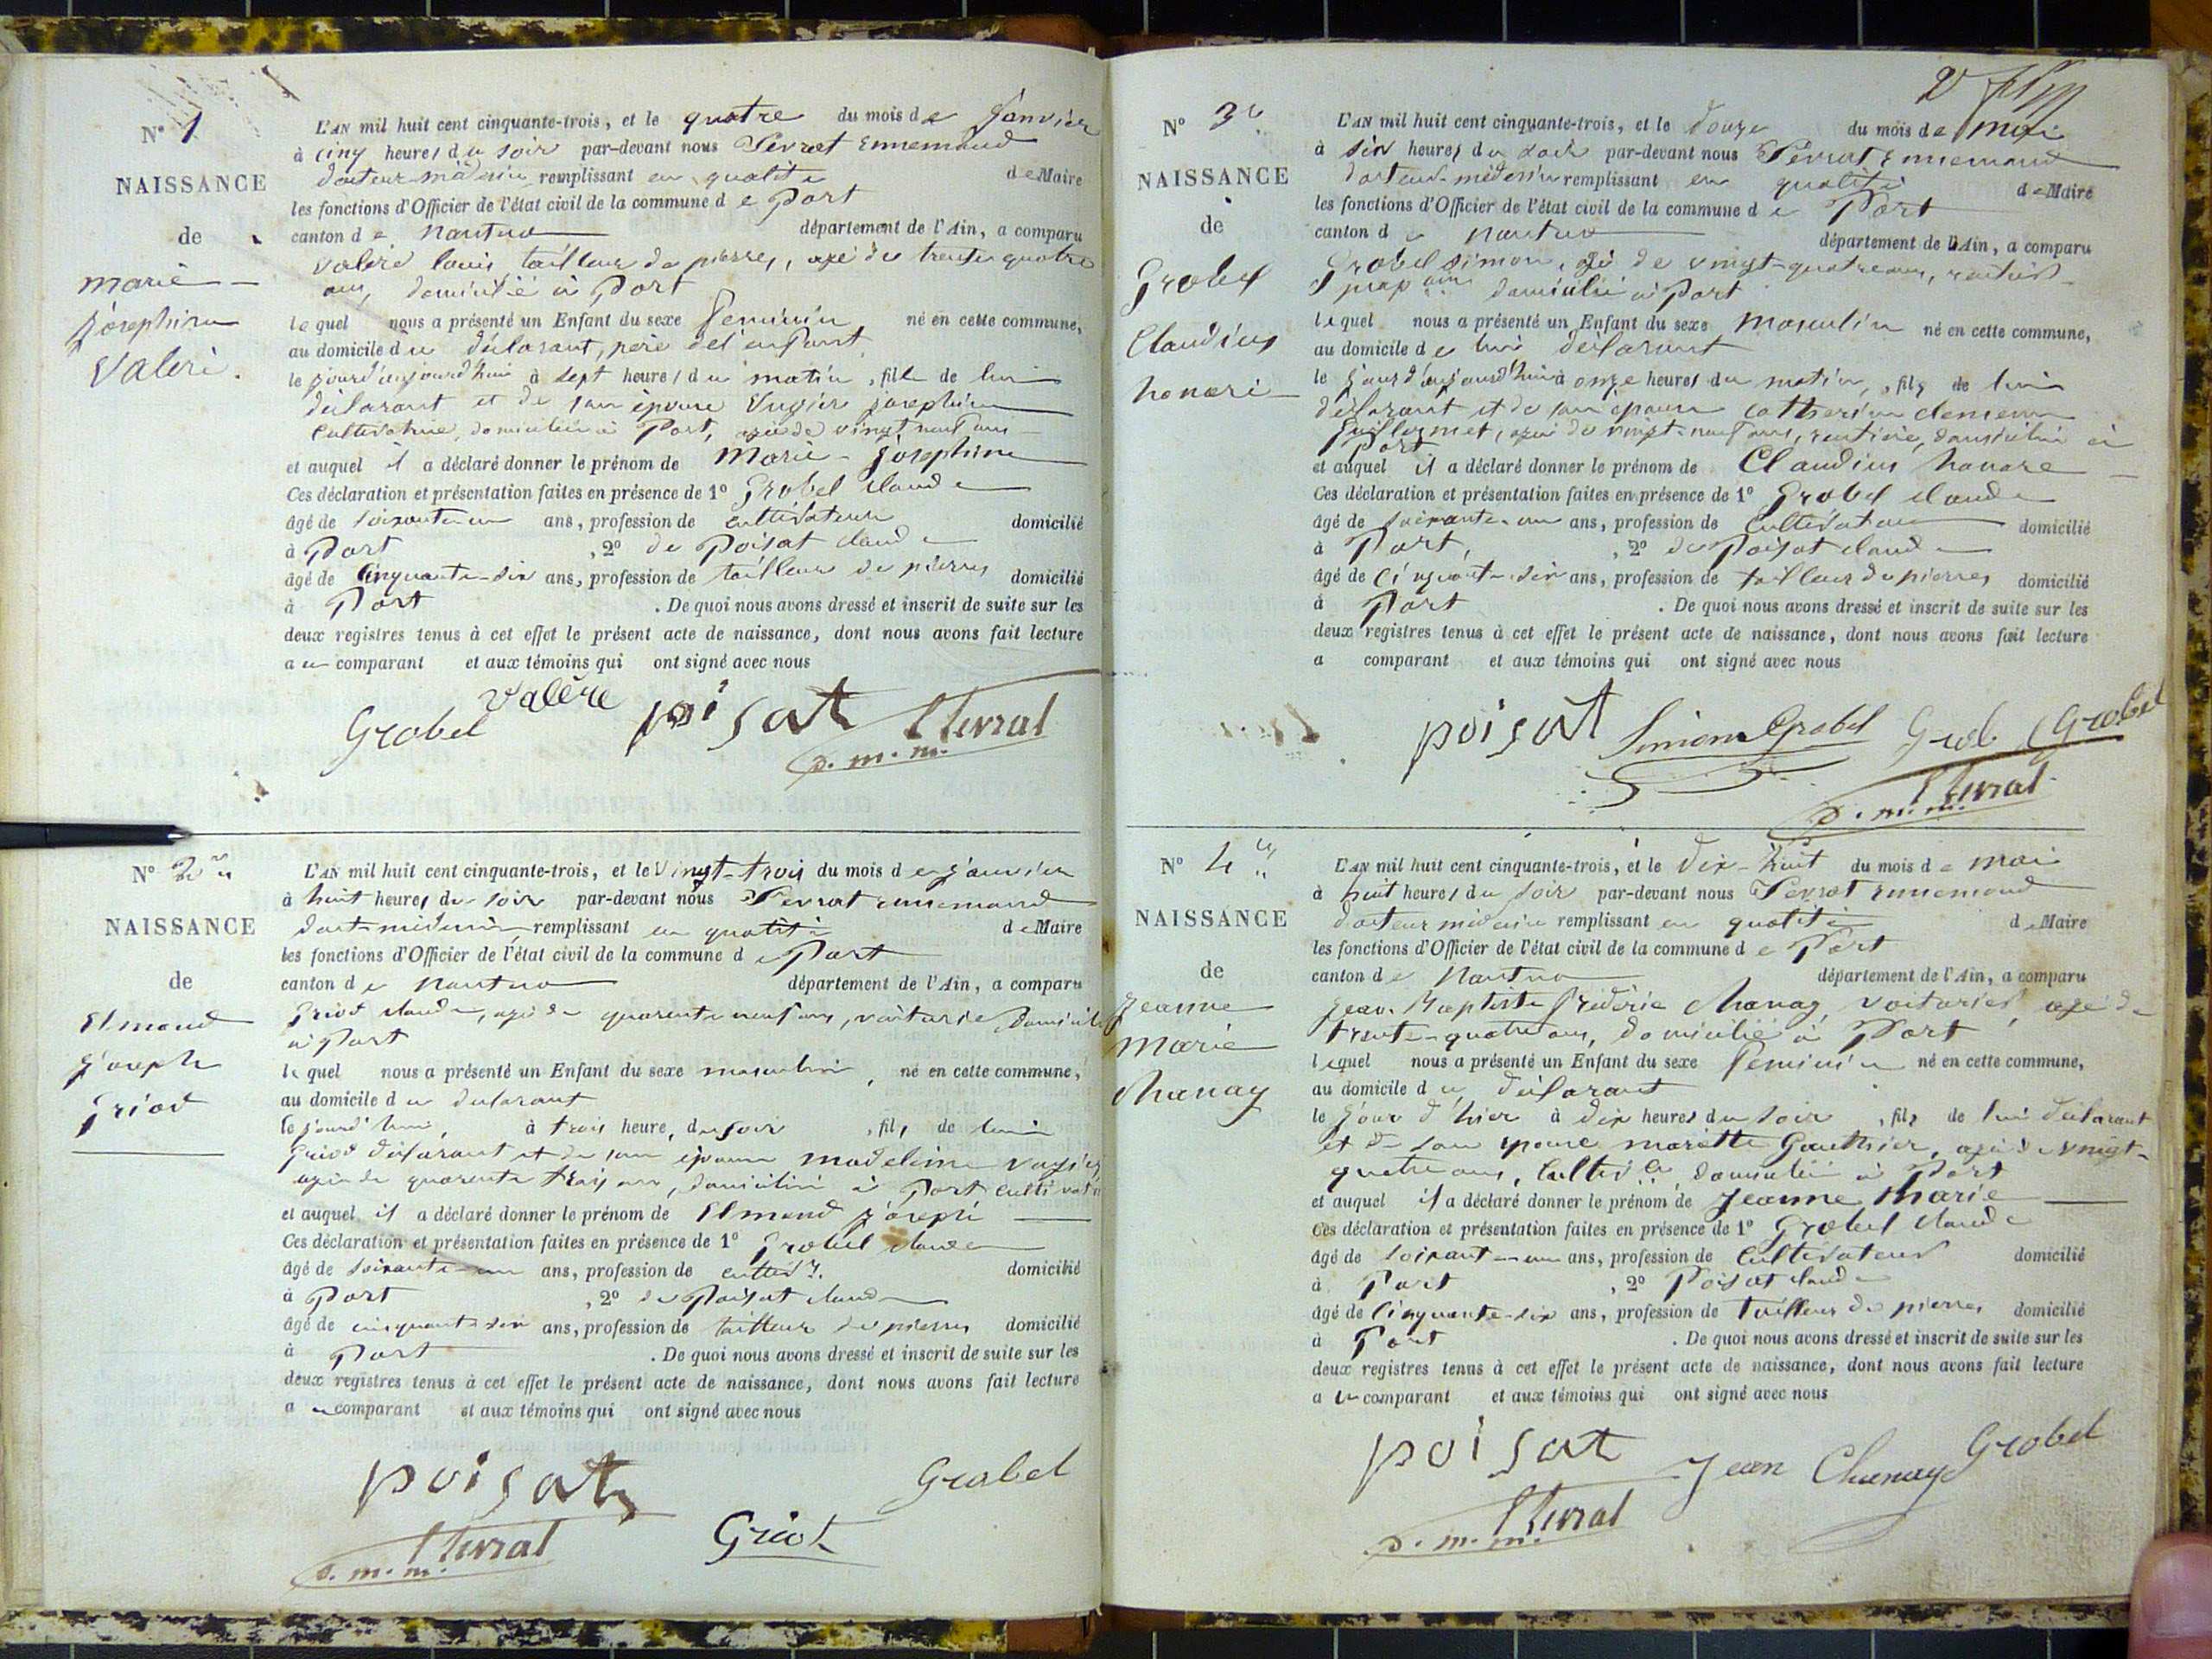 N° 1
NAISSANCE
de
marie
josephine
Valeri.
L'AN mil huit cent cinquante-trois, et le quatre du mois de Janvier
à cinq heures du soir par-devant nous Pevrat Ennemond
docteur médecin remplissant en qualité de Maire
les fonctions d'Officier de l'état civil de la commune de Port
canton de nantua département de l'Ain, a comparu
Valeré louis, tailleur de pierres, agé de trente quatre
ans, domicilié à Port
lequel nous a présenté un Enfant du sexe feminin né en cette commune,
au domicile du déclarant, père de l'enfant
le jourd'aujourd'hui à sept heures du matin, fille de lui
déclarant et de son épouse josephine
cultivatrice, domiciliée à Port, agée de vingt neuf ans
et auquel il a déclaré donner le prénom de Marie-Josephine
Ces déclaration et présentation faites en présence de 1° Grobel claude
âgé de soixante un ans, profession de cultivateur domicilié
à Port , 2° de Poisat claude
âgé de cinquante-six ans, profession de tailleur de pierres domicilié
à Port . De quoi nous avons dressé et inscrit de suite sur les
deux registres tenus à cet effet le présent acte de naissance, dont nous avons fait lecture
au comparant et aux témoins qui ont signé avec nous
Grobel Valère poisat Pevrat
d. m. m.
N° 2
NAISSANCE
de
Elmond
joseph
Griot
L'AN mil huit cent cinquante-trois, et le vingt-trois du mois de janvier
à huit heures du soir par-devant nous Pevrat ennemond
doct. médecin, remplissant en qualité de Maire
les fonctions d'Officier de l'état civil de la commune de Port
canton de nantua département de l'Ain, a comparu
Griot claude, agé de quarente neuf ans, voiturie domicilié
à Port
lequel nous a présenté un Enfant du sexe masculin, né en cette commune,
au domicile du declarant
le jourd'hui, à trois heures du soir, fils de lui
Griot déclarant et de son épouse madeleine
agée de quarente trois ans, domiciliée à Port
et auquel il a déclaré donner le prénom de Elmond joseph
Ces déclaration et présentation faites en présence de 1° Grobel claude
âgé de soixante-un ans, profession de cultivr. domicilié
à Port , 2° de Poisat claude
âgé de cinquante six ans, profession de tailleur de pierres domicilié
à Port . De quoi nous avons dressé et inscrit de suite sur les
deux registres tenus à cet effet le présent acte de naissance, dont nous avons fait lecture
au comparant et aux témoins qui ont signé avec nous
poisat Grobel
Pevrat Griot
d. m. m.
2
N° 3
NAISSANCE
de
Grobel
Claudius
honoré
L'AN mil huit cent cinquante-trois, et le douze du mois de mai
à six heures du soir par-devant nous Pevrat Ennemond
docteur-médecin remplissant en qualité de Maire
les fonctions d'Officier de l'état civil de la commune de Port
canton de nantua département de l'Ain, a comparu
Grobel simon, agé de vingt-quatre ans, rentier
domicilié à Port
lequel nous a présenté un Enfant du sexe masculin né en cette commune,
au domicile de lui déclarant
le jour d'aujourd'hui à onze heures du matin, fils de lui
déclarant et de son épouse Catherine clemence
Guillermet, agée de vingt-neuf ans, rentière, domiciliée à
Port
et auquel il a déclaré donner le prénom de Claudius honore
Ces déclaration et présentation faites en présence de 1° Grobel claude
âgé de soixante-un ans, profession de Cultivateur domicilié
à Port, , 2° de Poisat claude
âgé de cinquante-six ans, profession de tailleur de pierres domicilié
à Port . De quoi nous avons dressé et inscrit de suite sur les
deux registres tenus à cet effet le présent acte de naissance, dont nous avons fait lecture
a comparant et aux témoins qui ont signé avec nous
poisat Simon Grobel Grob Grobel
Pevrat
d. m. m.
N° 4
NAISSANCE
de
Jeanne
Marie
Chanay
L'AN mil huit cent cinquante-trois, et le dix-huit du mois de mai
à huit heures du soir par-devant nous Pevrat ennemond
docteur médecin remplissant en qualité de Maire
les fonctions d'Officier de l'état civil de la commune de Port
canton de Nantua département de l'Ain, a comparu
Jean-Baptiste fréderic Chanay, voiturier, agé de
trente-quatre ans, domicilié à Port
lequel nous a présenté un Enfant du sexe feminin né en cette commune,
au domicile du déclarant
le jour d'hier à dix heures du soir, fils de lui déclarant
et de son épouse mariette Gauthier, agée de vingt-
quatre ans, cultivce domiciliée à Port
et auquel il a déclaré donner le prénom de Jeanne Marie
Ces déclaration et présentation faites en présence de 1° Grobel claude
âgé de soixante-un ans, profession de Cultivateur domicilié
à Port , 2° Poisat claude
âgé de cinquante-six ans, profession de tailleur de pierres domicilié
à Port . De quoi nous avons dressé et inscrit de suite sur les
deux registres tenus à cet effet le présent acte de naissance, dont nous avons fait lecture
au comparant et aux témoins qui ont signé avec nous
poisat Jean Chanay Grobel
Pevrat
d. m. m.